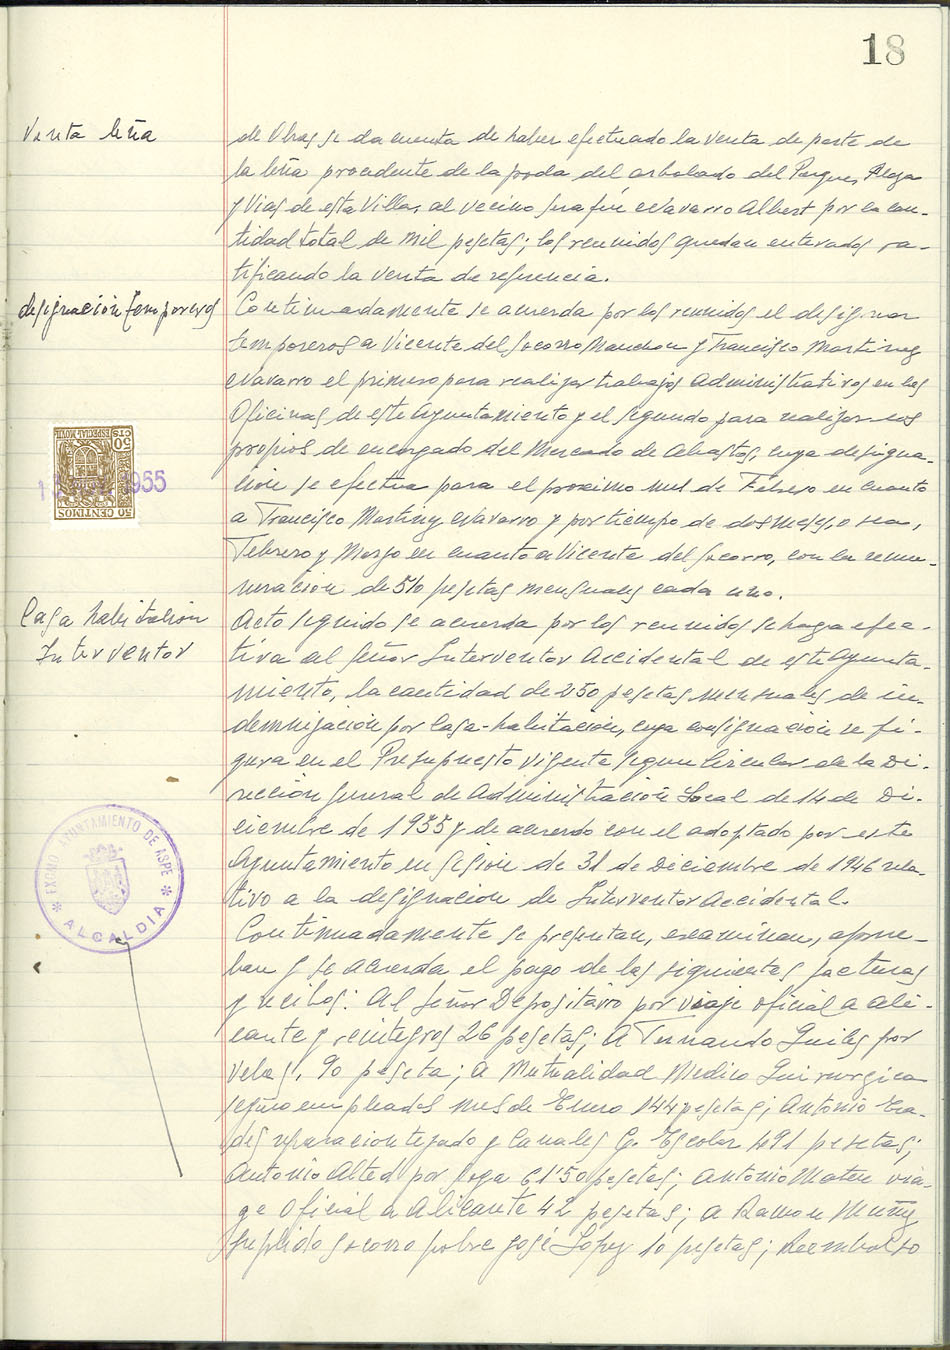 18
Venta leña
de Obras se da cuenta de haber efectuado la venta de parte de
la leña procedente de la poda del arbolado del Parque, Plaza
y Vias de esta Villa, al vecino Serafín Navarro Albert por la can-
tidad total de mil pesetas; los reunidos quedan enterados ra-
tificando la venta de referencia.
designación temporeros
Continuadamente se acuerda por los reunidos el designar
temporeros a Vicente del Socorro Manchon y Francisco Martinez
Navarro el primero para realizar trabajos Administrativos en las
Oficinas de este Ayuntamiento y el segundo para realizar los
propios de encargado del Mercado de Abastos, cuya designa-
ción se efectua para el proximo mes de Febrero en cuanto
a Francisco Martinez Navarro y por tiempo de dos meses, o sea,
Febrero y Marzo en cuanto a Vicente del Socorro, con la remu-
neración de 510 pesetas mensuales cada uno.
50 CENTIMOS
ESPECIAL MOVIL
50 CTS
1955
Casa habitación
Interventor
Acto seguido se acuerda por los reunidos se haga efec-
tiva al Señor Interventor Accidental de este Ayunta-
miento, la cantidad de 250 pesetas mensuales de in-
demnización por Casa-habitación, cuya consignación se fi-
gura en el Presupuesto vigente segun Circular de la Di-
rección General de Administración Local de 14 de Di-
ciembre de 1955 y de acuerdo con el adoptado por este
Ayuntamiento en Sesión de 31 de Diciembre de 1946 rela-
tivo a la designación de Interventor Accidental.
EXCMO. AYUNTAMIENTO DE ASPE
* ALCALDIA *
Continuadamente se presentan, examinan, aprue-
ban y se acuerda el pago de las siguientes facturas
y recibos: Al Señor Depositario por viaje oficial a Ali-
cante y reintegros 26 pesetas; A Fernando Guiles por
velas, 90 peseta; a Mutualidad Medico Quirurgica
seguro empleados mes de Enero 144 pesetas; Antonio
reparacion tejado y Canales G. Escolar 491 pesetas;
Antonio Alted por soga 61'50 pesetas; Antonio Mateu via-
ge Oficial a Alicante 42 pesetas; a Ramon Muñoz
suplido socorro pobre José López 10 pesetas; Reembolso